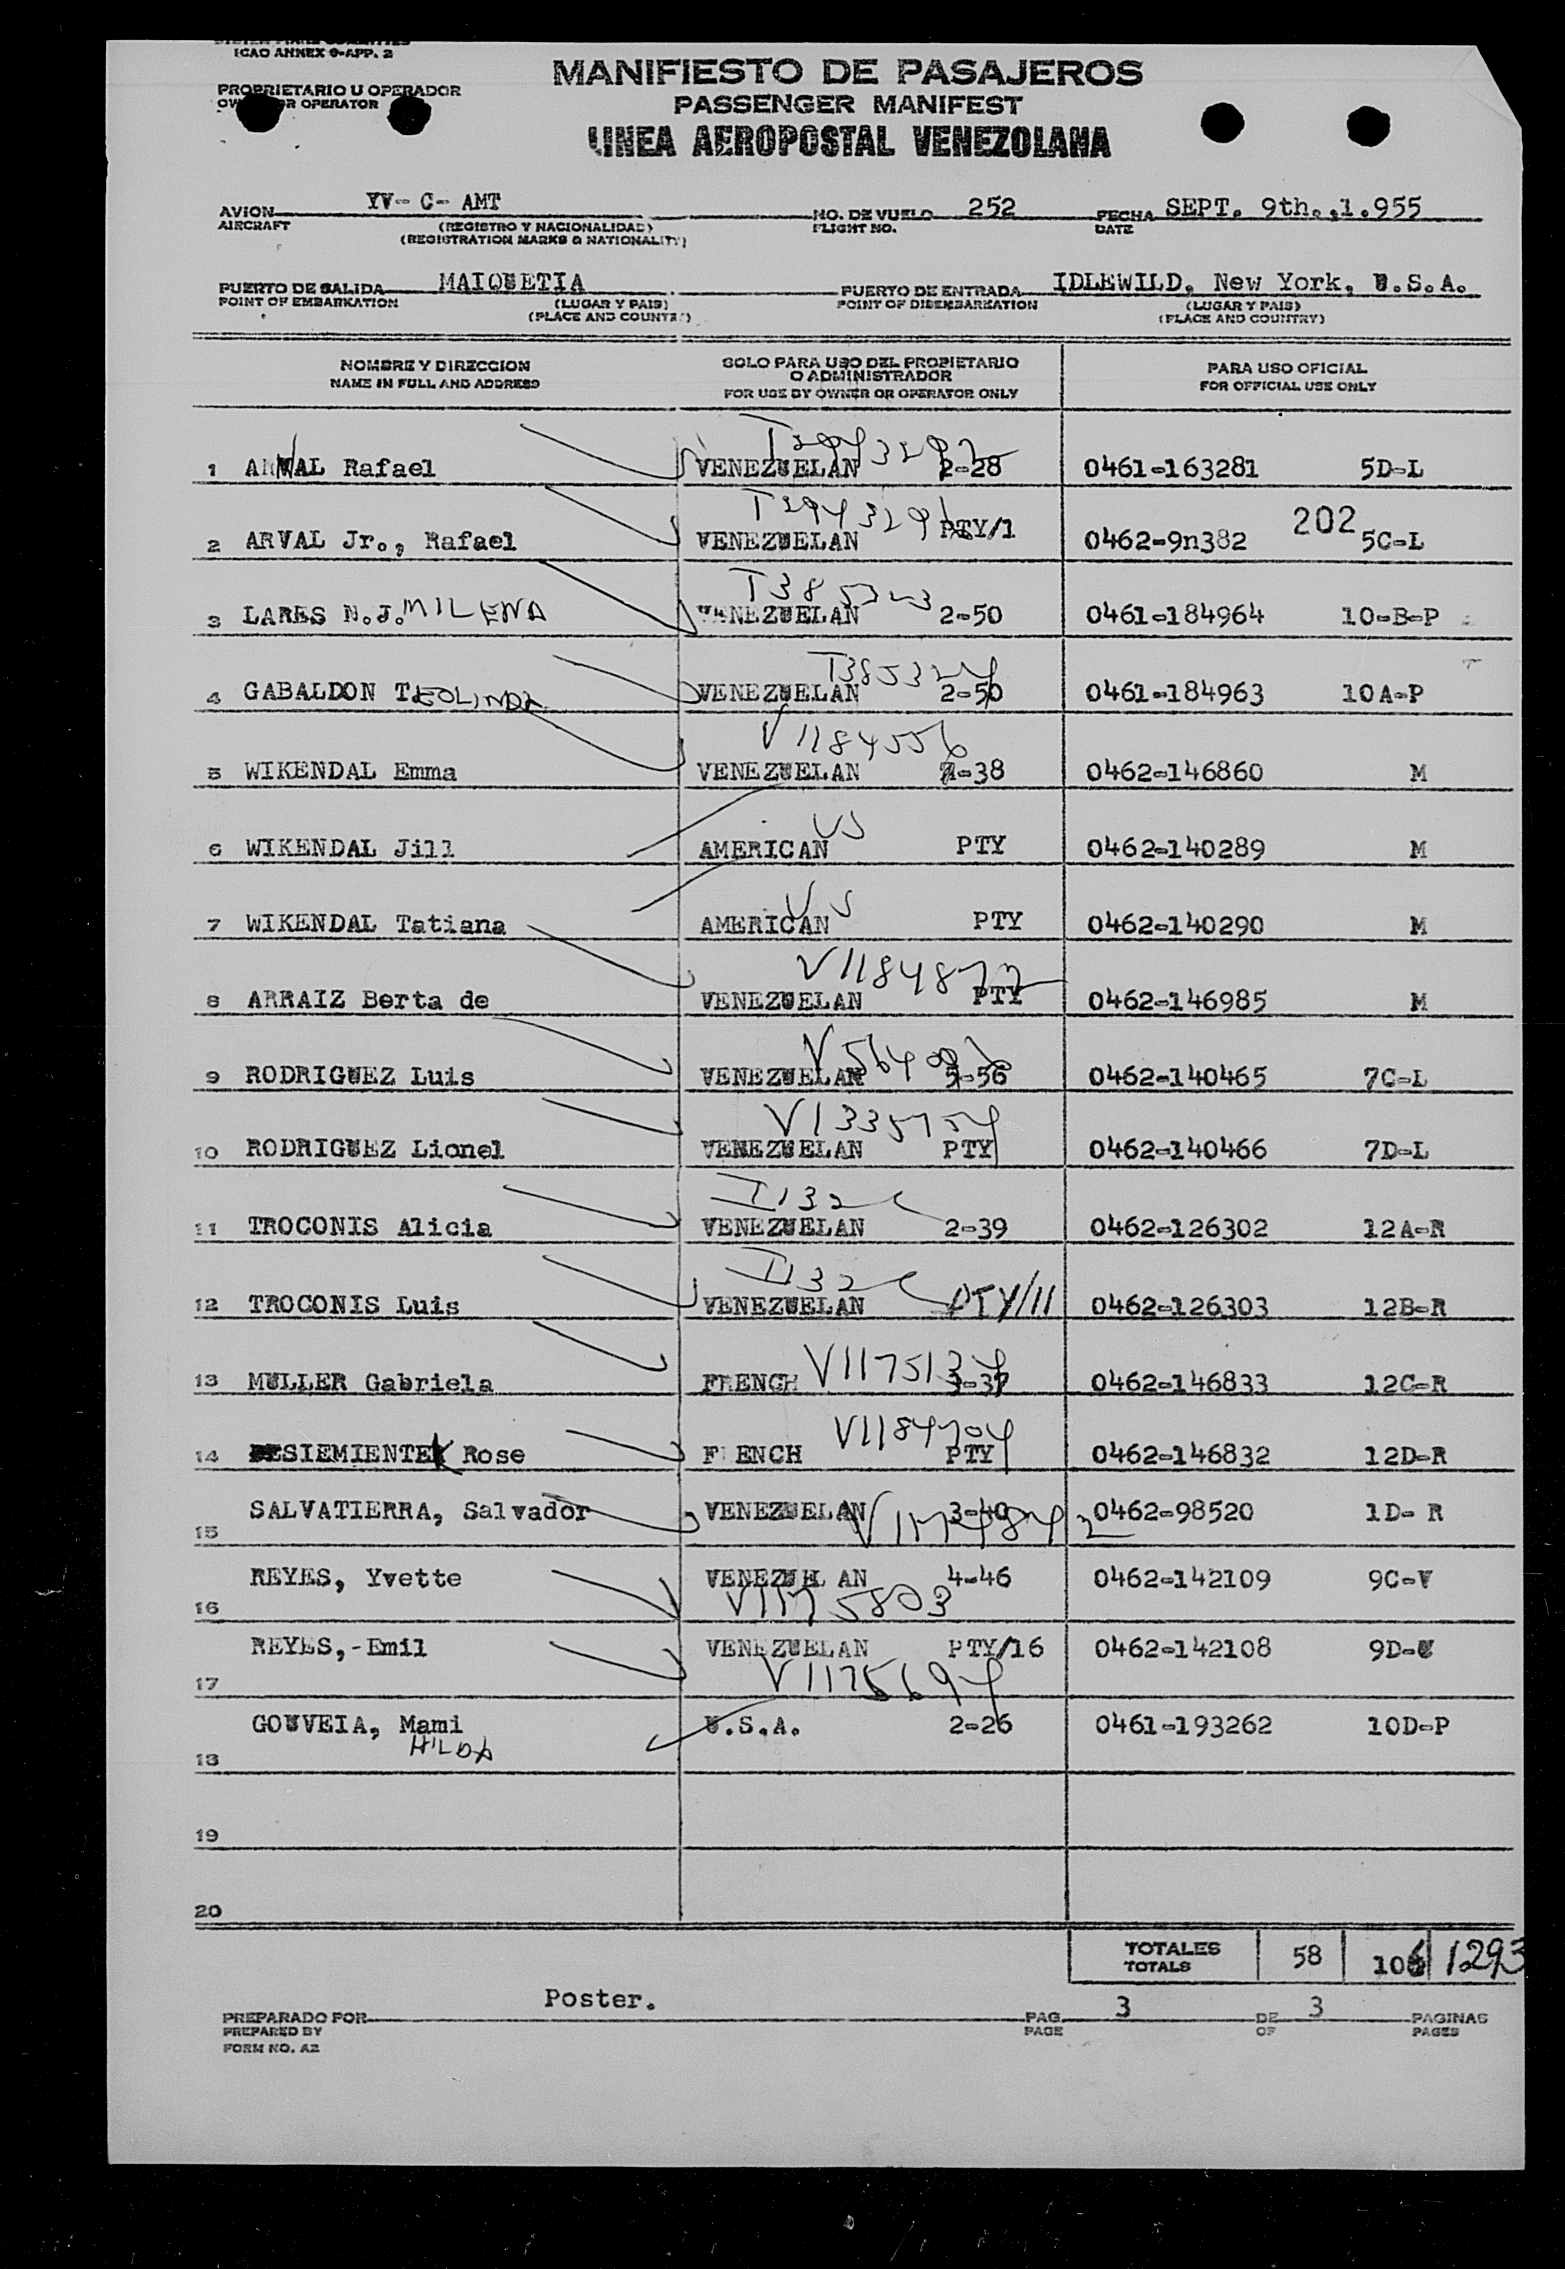 ICAO ANNEX 9-APP. 2
PROPRIETARIO U OPERADOR
OR OPERATOR
MANIFIESTO DE PASAJEROS
PASSENGER MANIFEST
LINEA AEROPOSTAL VENEZOLANA
AVION YV- C- AMT NO. DE VUELO 252 FECHA SEPT. 9th.,1.955
AIRCRAFT (REGISTRO Y NACIONALIDAD) FLIGHT NO. DATE
(REGISTRATION MARKS & NATIONALITY)
PUERTO DE SALIDA MAIQUETIA PUERTO DE ENTRADA IDLEWILD, New York, U.S.A.
POINT OF EMBARKATION (LUGAR Y PAIS) POINT OF DISEMBARKATION (LUGAR Y PAIS)
(PLACE AND COUNTRY) (PLACE AND COUNTRY)
NOMBRE Y DIRECCION SOLO PARA USO DEL PROPIETARIO PARA USO OFICIAL
O ADMINISTRADOR
NAME IN FULL AND ADDRESS FOR USE BY OWNER OR OPERATOR ONLY FOR OFFICIAL USE ONLY
1 ARVAL Rafael VENEZUELAN 2-28 0461-163281 5D-L
T294329
202
2 ARVAL Jr., Rafael VENEZUELAN PTY/1 0462-9n382 5C-L
T385323
3 LARES N.J. MILENA VENEZUELAN 2-50 0461-184964 10-B-P
T385324
4 GABALDON TEOLINDA VENEZUELAN 2-50 0461-184963 10A-P
V1184556
5 WIKENDAL Emma VENEZUELAN 2-38 0462-146860 M
US
6 WIKENDAL Jill AMERICAN PTY 0462-140289 M
US
7 WIKENDAL Tatiana AMERICAN PTY 0462-140290 M
V1184872
8 ARRAIZ Berta de VENEZUELAN PTY 0462-146985 M
9 RODRIGUEZ Luis VENEZUELAN 5-56 0462-140465 7C-L
10 RODRIGUEZ Lionel VENEZUELAN PTY 0462-140466 7D-L
I132c
11 TROCONIS Alicia VENEZUELAN 2-39 0462-126302 12A-R
I132c
12 TROCONIS Luis VENEZUELAN PTY/11 0462-126303 12B-R
V1175134
13 MULLER Gabriela FRENCH 3-37 0462-146833 12C-R
V1184704
14 SIEMIENTEK Rose FRENCH PTY 0462-146832 12D-R
15 SALVATIERRA, Salvador VENEZUELAN 3-40 0462-98520 1D- R
16 REYES, Yvette VENEZUELAN 4-46 0462-142109 9C-V
V1175803
17 REYES,-Emil VENEZUELAN PTY/16 0462-142108 9D-U
V1175694
18 GOUVEIA, Mami U.S.A. 2-26 0461-193262 10D-P
HILDA
19
20
TOTALES 58 106 1293
TOTALS
PREPARADO POR Poster. PAG. 3 DE 3 PAGINAS
PREPARED BY PAGE OF PAGES
FORM NO. A2